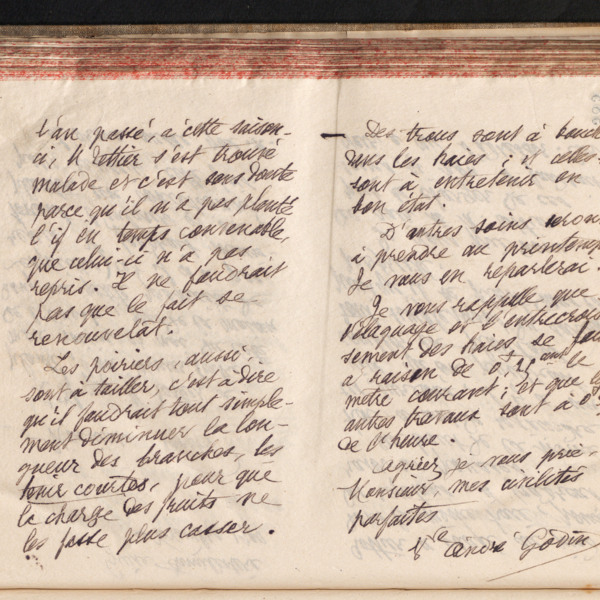 l'an passé, à cette saison-
ci, M. Sethier s'est trouvé
malade et c'est sans doute
parce qu'il n'a pas planté
l'if en temps convenable,
que celui-ci n'a pas
repris. Il ne faudrait
pas que le fait se
renouvelât.
Les poiriers, aussi,
sont à tailler, c'est à dire
qu'il faudrait tout simple-
ment diminuer la lon-
gueur des branches, les
tenir courtes, pour que
la charge des fruits ne
les fasse plus casser.
Des trous sont à bouch
dans les haies ; et celles-
sont à entretenir en
bon état.
D'autres soins seront
à prendre au printemps
Je vous en reparlerai.
Je vous rappelle que
l'élaguage et l'entrecroi
sement des haies se fait
à raison de le
mètre courant ; et que les
autres travaux sont à 0f
de l'heure.
Agréez je vous prie,
Monsieur mes civilités
parfaites
Vve André Godin